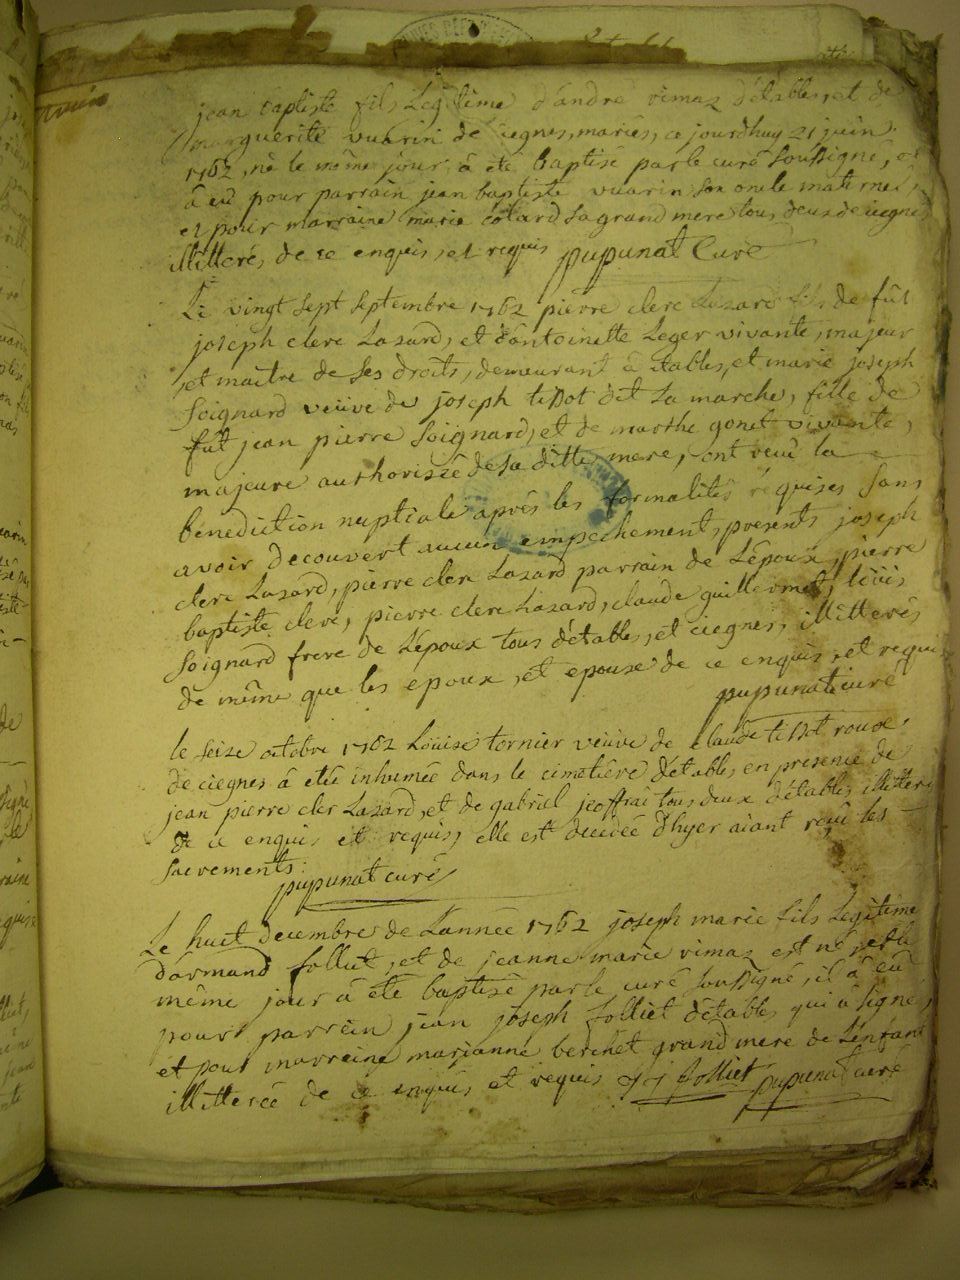 jean baptiste fils Legitime d'andre vimaz d'étables, et de
marguerite vuarin de ciegnes, mariés, ce jourdhuy 21 juin
1762, né le même jour, à eté baptisé par le curé soussigné,
à eû pour parrain jean baptiste vuarin son oncle maternel,
et pour marraine marie cotard sa grand mere tous deux de ciegnes
illitteré, de ce enquis, et requis pupunat Curé
Le vingt sept septembre 1762 pierre clerc Lazard fils de fût
joseph clerc Lazard, et d'antoinette Leger vivante, majeur
et maitre de ses droits, demeurant à étables, et marie joseph
soignard veuve de joseph tissot dit La marche, fille de
fût jean pierre soignard, et de marthe gonet vivante,
majeure authorisée de sa ditte mere, ont reçû la
bénédiction nuptiale après les formalités réquises sans
avoir decouvert aucun empechement, présents joseph
clerc Lazard, pierre clerc Lazard parrain de L'époux, pierre
baptiste clerc, pierre clerc Lazard, claude guillermet, loüis
soignard frere de L'épouse tous d'étables, et ciegnes, illitterés
de même que les epoux, et epouse de ce enquis, et requis
pupunat curé
le seize octobre 1762 Loüise tornier veuve de claude tissot roux
de ciegnes à etée inhumée dans le cimetière d'étables, en présence de
jean pierre clerc Lazard, et de gabriel jeoffrai tous deux d'étables illitterés
de ce enquis et requis, elle est décédée d'hyer aiant reçû les
sacrements: pupunat curé
Le huit decembre de L'année 1762 joseph marie fils Legitime
d'armand folliet, et de jeanne marie vimaz est né, et le
même jour à eté baptisé par le curé soussigné, il à eû
pour parrein jean joseph folliet d'étables qui à signé,
et pour marreine marjanne berchet grand mere de L'enfant
illitterée de ce enquis et requis JJ folliet pupunat curé